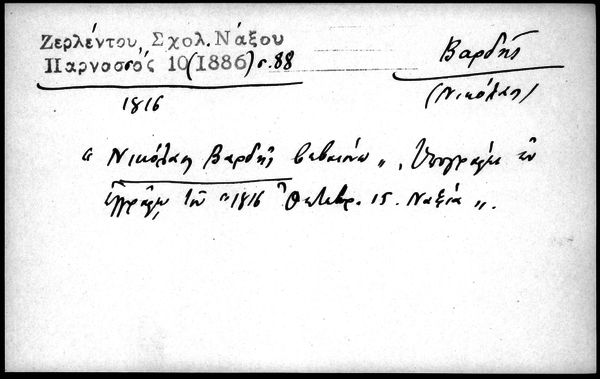 Ζερλέντου, Σχολ. Νάξου
Παρνασσός 10 (1886) σ. 88
Βαρδῆς
(Νικόλαος)
1816
" Νικόλαος Βαρδῆς βεβαιόνω ". Ὑπογραφὴ ἐν
ἐγγράφῳ τοῦ "1816 Ὀκτωβρ. 15. Ναξία ".